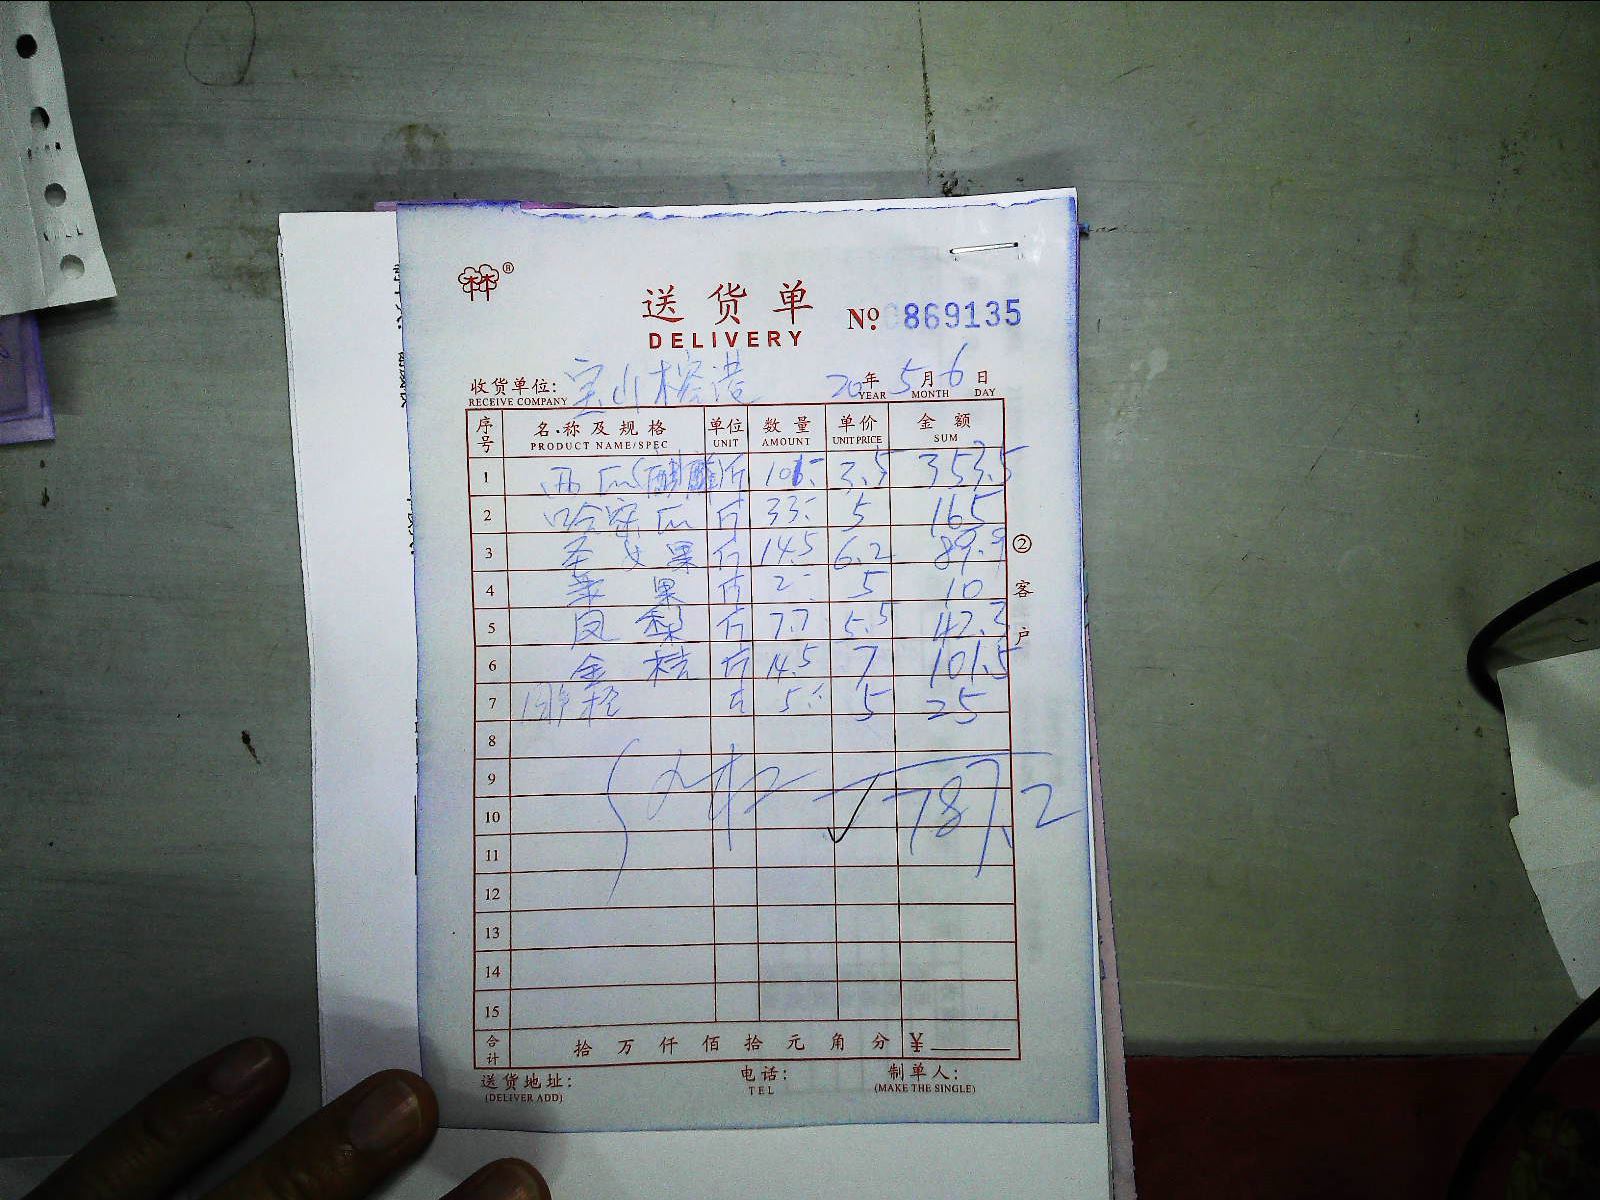 林 ®
送货单 No 0869135
DELIVERY
收货单位: 宝山榕港 20年 5月 6日
RECEIVE COMPANY YEAR MONTH DAY
序号 名称及规格 单位 数量 单价 金额
PRODUCT NAME/SPEC UNIT AMOUNT UNIT PRICE SUM
1 西瓜(麒麟 斤 101 3.5 353.5
2 哈密瓜 斤 33 5 165
3 圣女果 斤 14.5 6.2 89.9
4 苹果 斤 2 5 10
5 凤梨 斤 7.7 5.5 42.3
6 金桔 斤 14.5 7 101.5
7 柳橙 斤 5 5 25
8
9
10 787.2
11
12
13
14
15
合计 拾万仟佰拾元角分 ¥
②客户
送货地址: 电话: 制单人:
(DELIVER ADD) TEL (MAKE THE SINGLE)